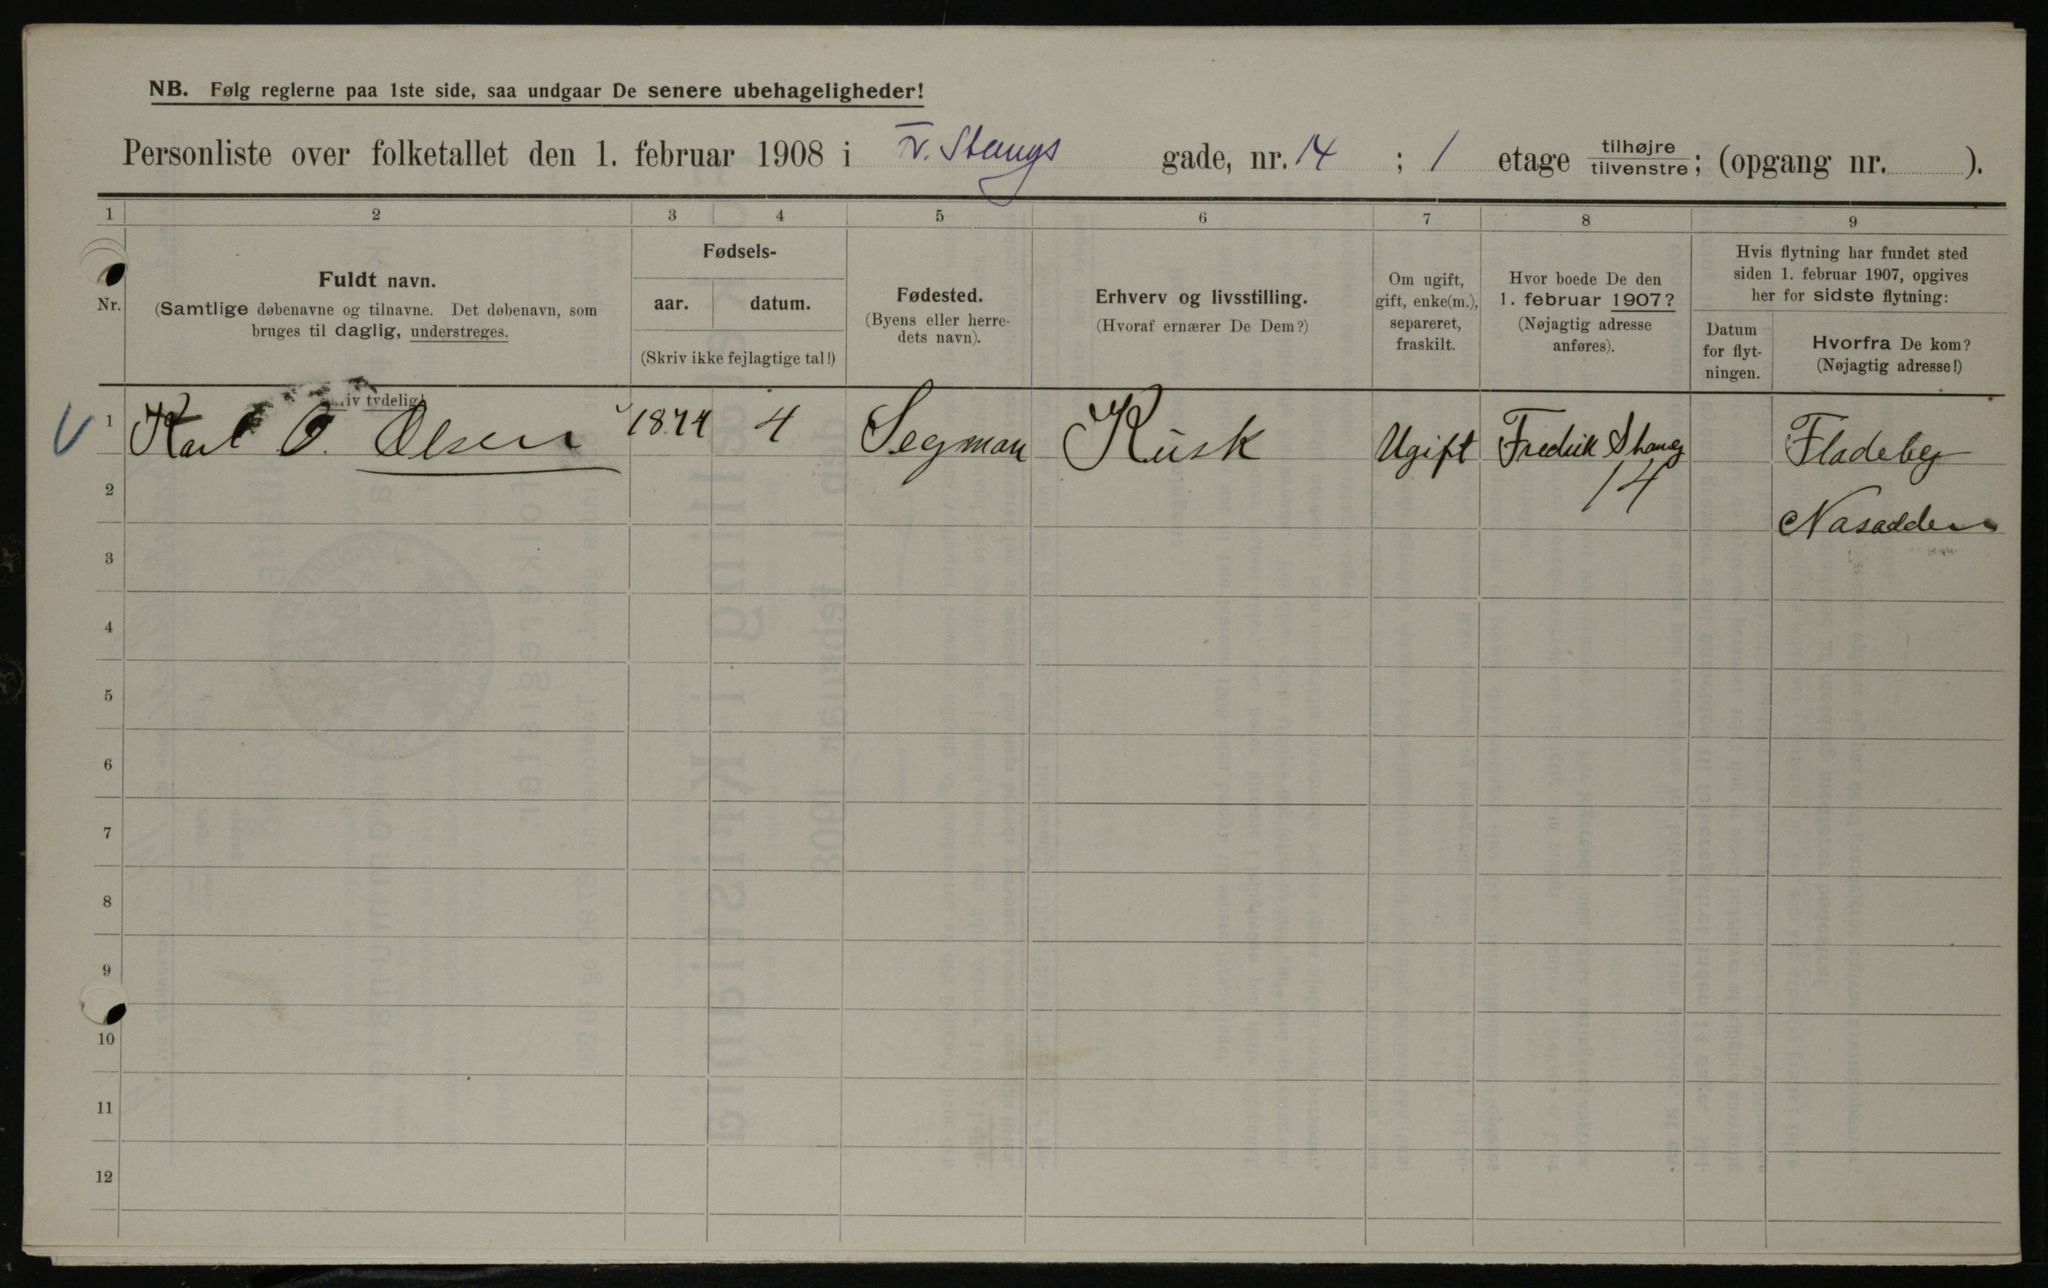 NB. Følg reglerne paa 1ste side, saa undgaar De senere ubehageligheder!
Personliste over folketallet den 1. februar 1908 i Fr. Stangs gade, nr. 14 ; 1 etage tilhøjre/tilvenstre; (opgang nr. ).
1 2 3 4 5 6 7 8 9
Nr.
Fuldt navn.
(Samtlige døbenavne og tilnavne. Det døbenavn, som
bruges til daglig, understreges.
Fødsels-
aar. datum.
(Skriv ikke fejlagtige tal!)
Fødested.
(Byens eller herre-
dets navn).
Erhverv og livsstilling.
(Hvoraf ernærer De Dem?)
Om ugift,
gift, enke(m.),
separeret,
fraskilt.
Hvor boede De den
1. februar 1907?
(Nøjagtig adresse
anføres).
Hvis flytning har fundet sted
siden 1. februar 1907, opgives
her for sidste flytning:
Datum
for flyt-
ningen.
Hvorfra De kom?
(Nøjagtig adresse!)
tydelig!
1 Karl O. Olsen 1874 4 Segman Kusk Ugift Fredrik Stang Fladeby
14
2 Nasodden
3
4
5
6
7
8
9
10
11
12